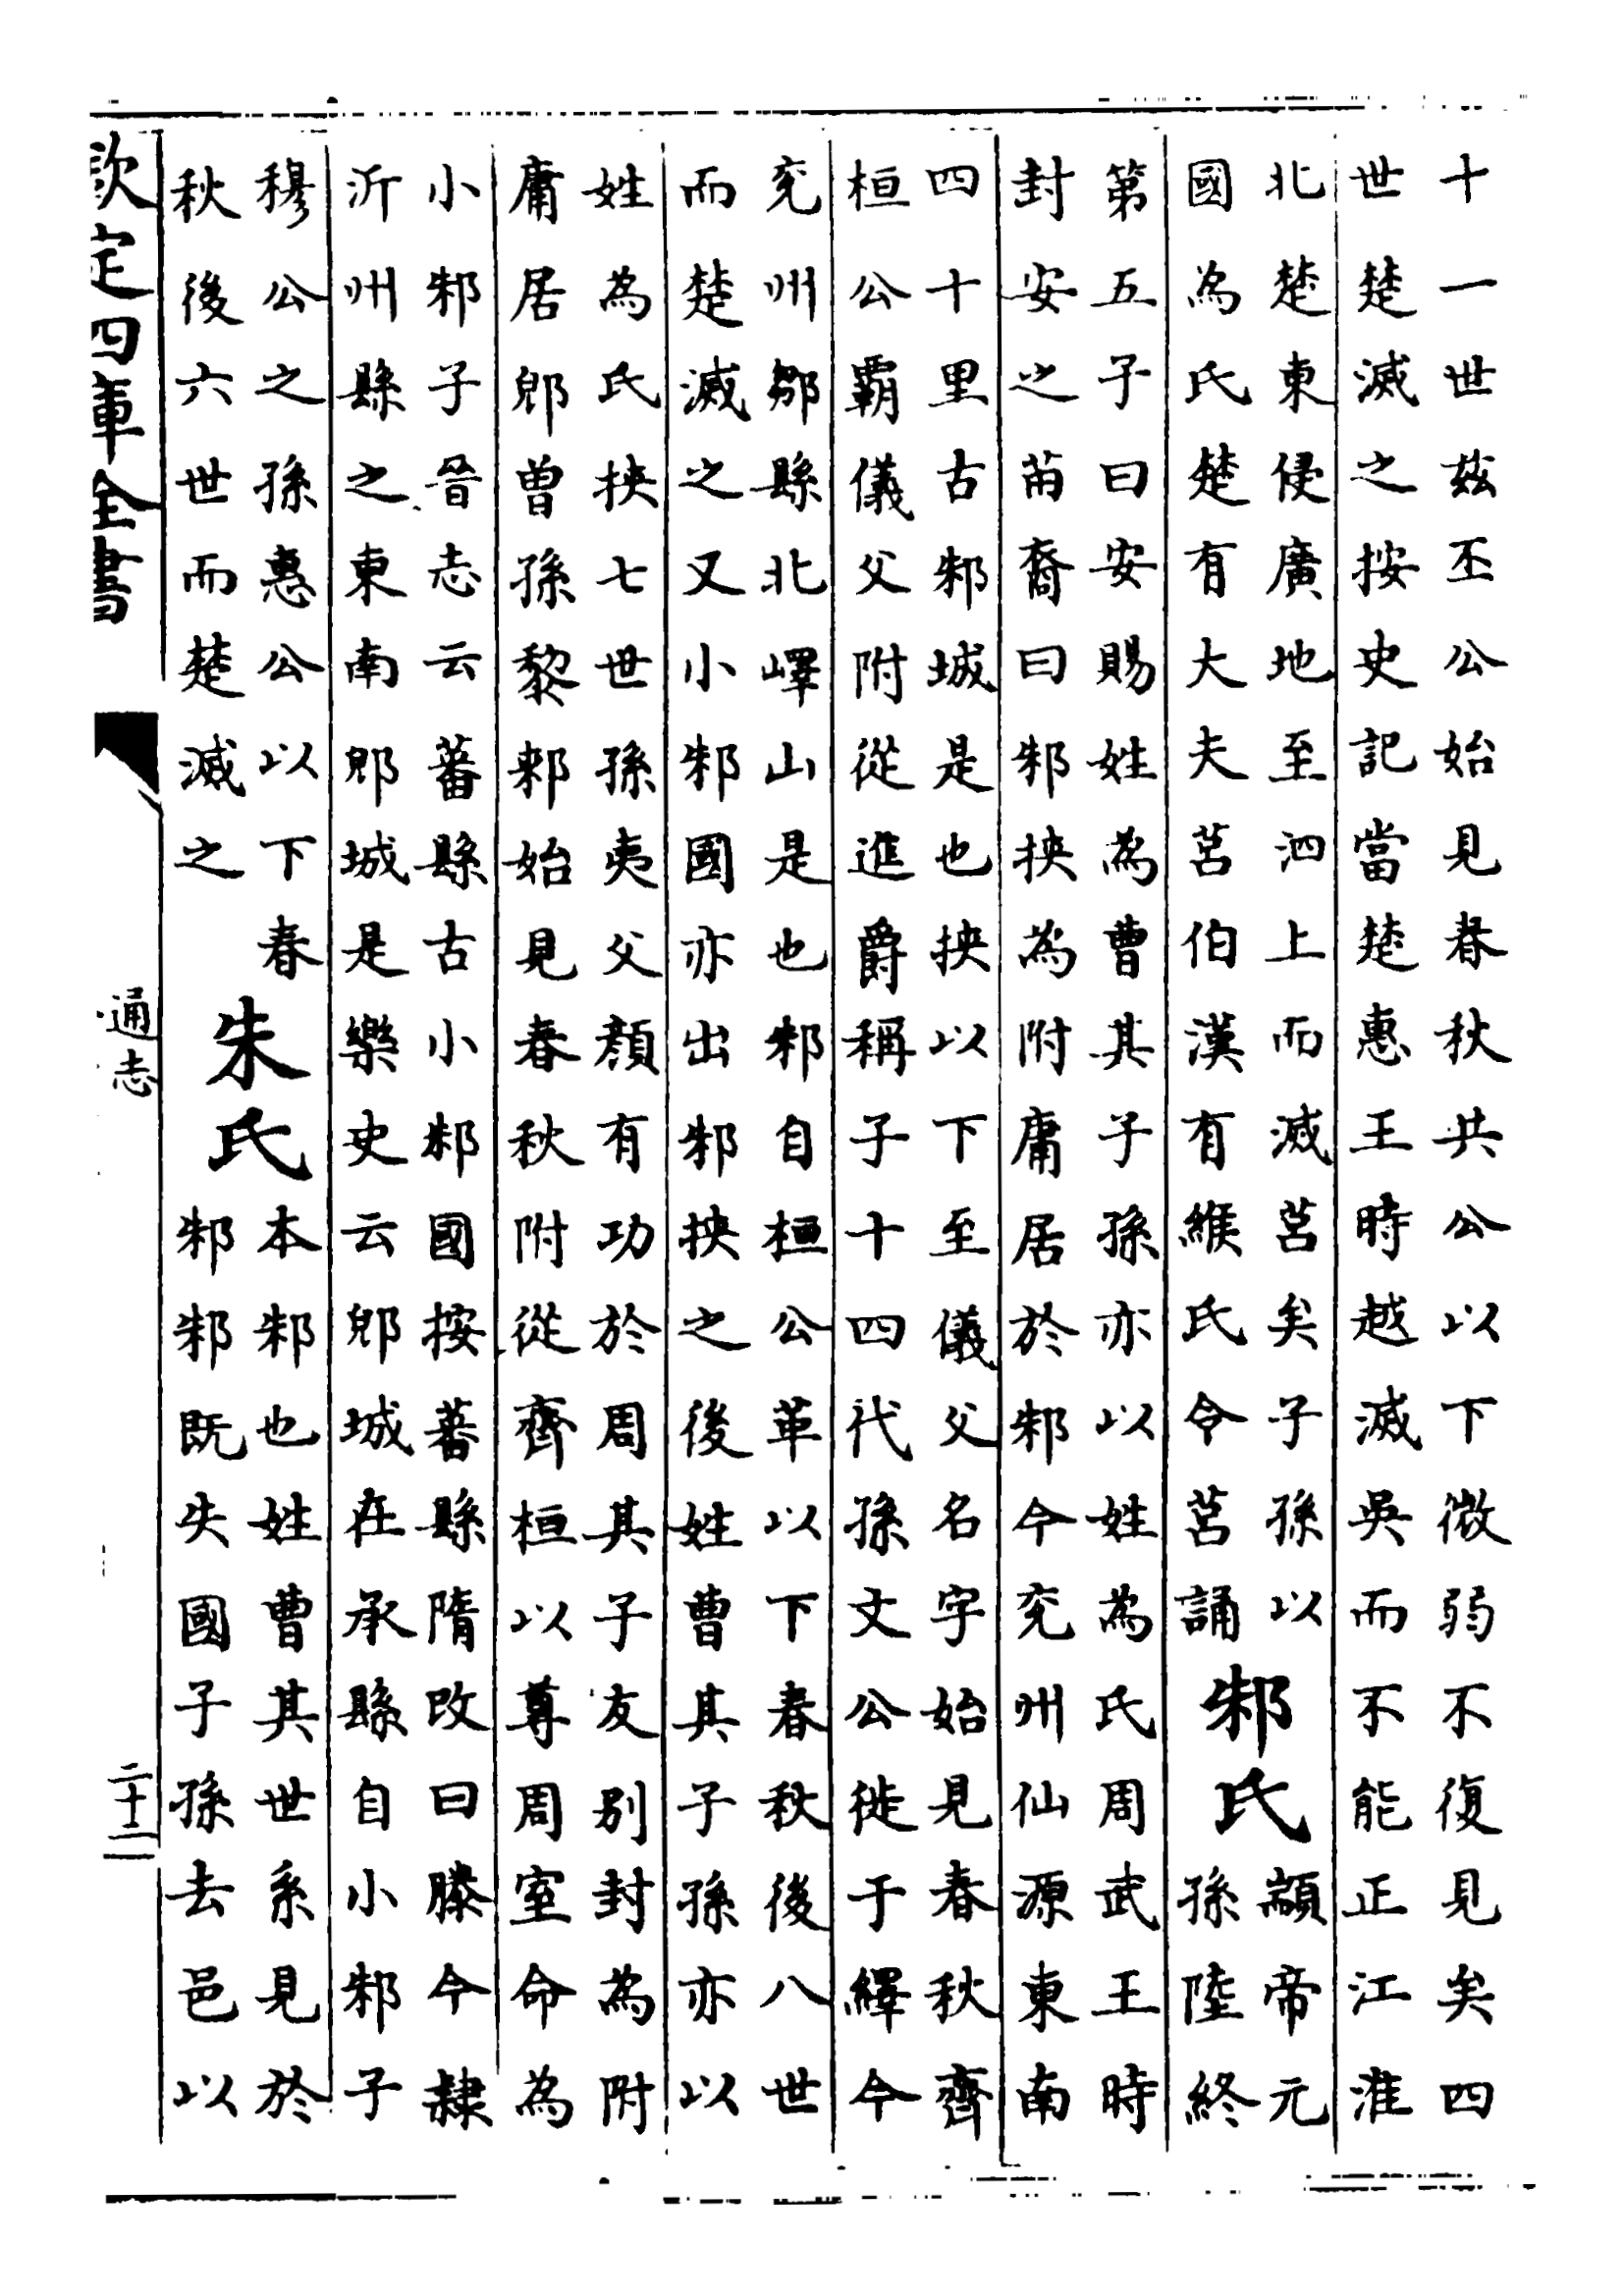 十一世茲丕公始見春秋共公以下微弱不復見矣四
世楚滅之按史記當楚惠王時越滅吳而不能正江淮
北楚東侵廣地至泗上而滅莒矣子孫以
國為氏楚有大夫莒伯漢有緱氏令莒誦
邾氏
顓帝元
孫陸終
第五子曰安賜姓為曹其子孫亦以姓為氏周武王時
封安之苗裔曰邾挾為附庸居於邾今兖州仙源東南
四十里古邾城是也挾以下至儀父名字始見春秋齊
桓公霸儀父附從進爵稱子十四代孫文公徙于繹今
兖州鄒縣北嶧山是也邾自桓公革以下春秋後八世
而楚滅之又小邾國亦出邾挾之後姓曹其子孫亦以
姓為氏挾七世孫夷父顔有功於周其子友别封為附
庸居郳曾孫黎郲始見春秋附從齊桓以尊周室命為
小邾子晉志云蕃縣古小邾國按蕃縣隋改曰滕今隸
沂州縣之東南郳城是樂史云郳城在承縣自小邾子
穆公之孫惠公以下春
秋後六世而楚滅之
朱氏
本邾也姓曹其世系見於
邾邾既失國子孫去邑以
欽定四庫全書
通志
二十二